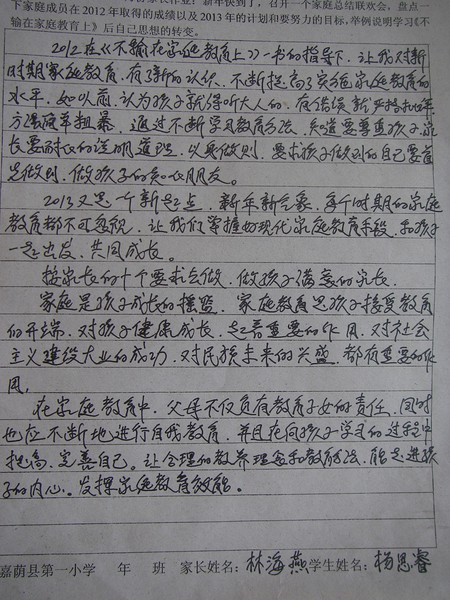 下家庭成员在 2012 年取得的成绩以及 2013 年的计划和要努力的目标,举例说明学习《不
输在家庭教育上》后自己思想的转变。
2012在《不输在家庭教育上》一书的指导下,让我对新
时期家庭教育,有了新的认识,不断提高了实施家庭教育的
水平,如以前,认为孩子就得听大人的,有错误就严格批评
方法简单粗暴,通过不断学习教育方法,知道要尊重孩子,家
长要耐心的说明道理,以身做则,要求孩子做到的自己要首
先做到,做孩子的知心朋友。
2013又是一个新起点,新年新气象,每个时期的家庭
教育都不可忽视,让我们掌握好现代家庭教育手段,和孩子
一起出发,共同成长。
按家长的十个要求去做,做孩子满意的家长。
家庭是孩子成长的摇篮,家庭教育是孩子接受教育
的开端,对孩子健康成长,起着重要的作用,对社会
主义建设大业的成功,对民族未来的兴盛,都有重要的作
用,
在家庭教育中,父母不仅负有教育子女的责任,同时
也应不断地进行自我教育,并且在向孩子学习的过程中
提高,完善自己。让合理的教养理念和教育方法,能走进孩
子的内心。发挥家庭教育效能。
嘉荫县第一小学 年 班 家长姓名:林海燕学生姓名:杨思睿